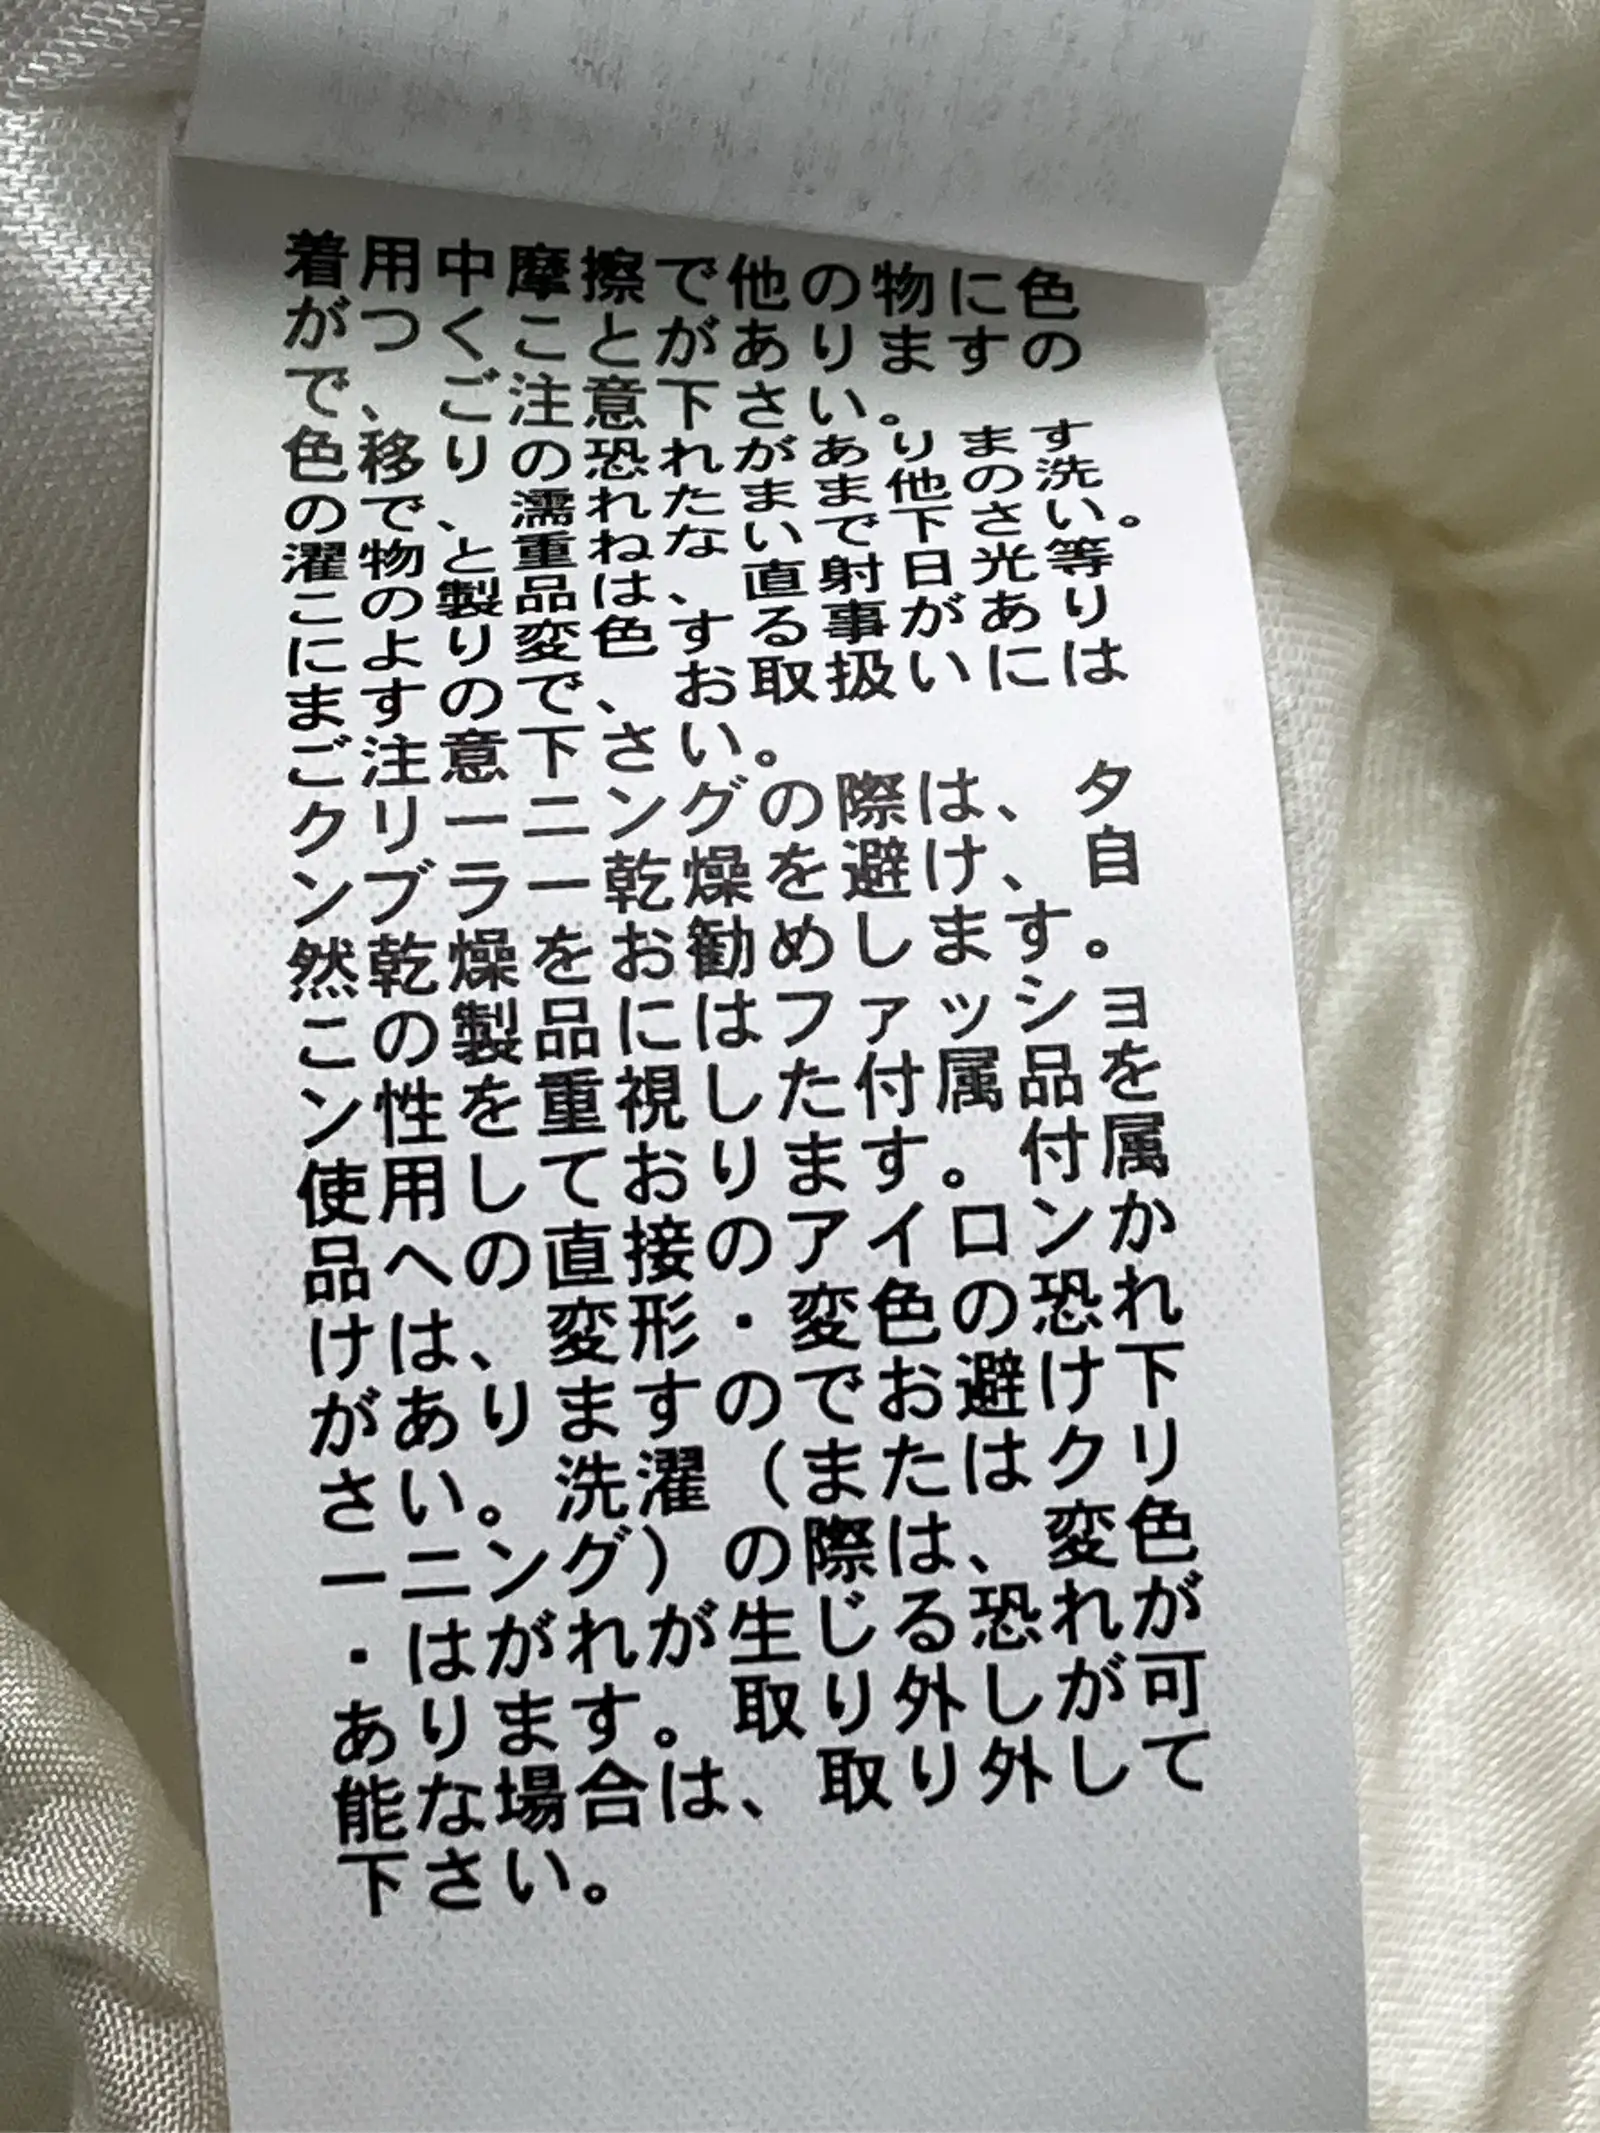 着用中摩擦で他の物に色
がつくことがありますの
で、ご注意下さい。
色移りの恐れがあります
ので、濡れたまま他の洗
濯物と重ねないで下さい。
この製品は、直射日光等
により変色する事があり
ますので、お取扱いには
ご注意下さい。
クリーニングの際は、タ
ンブラー乾燥を避け、自
然乾燥をお勧めします。
この製品にはファッショ
ン性を重視した付属品を
使用しております。付属
品への直接のアイロンか
けは、変形・変色の恐れ
がありますのでお避け下
さい。洗濯（またはクリ
ーニング）の際は、変色
・はがれが生じる恐れが
あります。取り外しが可
能な場合は、取り外して
下さい。